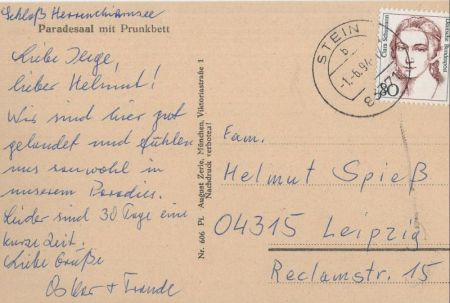 Schloß Herrenchiemsee
Paradesaal mit Prunkbett
Liebe Inge,
lieber Helmut!
Wir sind hier gut
gelandet und fühlen
uns sauwohl in
unserem Paradies.
Leider sind 30 Tage eine
kurze Zeit.
Liebe Grüße
Oskar + Traude
Nr. 606 Pl. August Zerle, München, Viktoriastraße 1
Nachdruck verboten!
STEIN
b
-1.-6.94
8
Clara Schumann
Deutsche Bundespost
80
Fam.
Helmut Spieß
04315 Leipzig
Reclamstr. 15